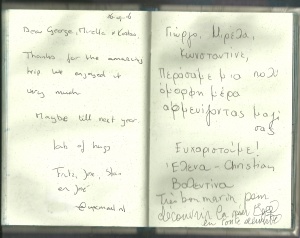 Dear George, Mirella & Kostas
Thanks for the amazing
trip we enjoyed it
very much.
Maybe till next year.
Lots of hugs
en Joé
Γιώργο, Μιρέλα,
Κωνσταντίνε,
Περάσαμε μια πολύ
όμορφη μέρα
αρμενίζοντας μαζί
σας
Ευχαριστούμε!
Έλενα - Christian
Βαλεντίνα
Très bon marin pour
découvrir la mer
en toute sécurité